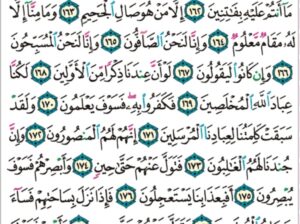 مَآ أَنتُمْ عَلَيْهِ بِفَٰتِنِينَ ١٦٢ إِلَّا مَنْ هُوَ صَالِ ٱلْجَحِيمِ ١٦٣ وَمَامِنَّآ إِلَّا
لَهُۥ مَقَامٌ مَّعْلُومٌ ١٦٤ وَإِنَّا لَنَحْنُ ٱلصَّآفُّونَ ١٦٥ وَإِنَّا لَنَحْنُ ٱلْمُسَبِّحُونَ
١٦٦ وَإِن كَانُوا۟ لَيَقُولُونَ ١٦٧ لَوْ أَنَّ عِندَنَا ذِكْرًا مِّنَ ٱلْأَوَّلِينَ ١٦٨ لَكُنَّا
عِبَادَ ٱللَّهِ ٱلْمُخْلَصِينَ ١٦٩ فَكَفَرُوا۟ بِهِۦ فَسَوْفَ يَعْلَمُونَ ١٧٠ وَلَقَدْ
سَبَقَتْ كَلِمَتُنَا لِعِبَادِنَا ٱلْمُرْسَلِينَ ١٧١ إِنَّهُمْ لَهُمُ ٱلْمَنصُورُونَ ١٧٢ وَإِنَّ
جُندَنَا لَهُمُ ٱلْغَٰلِبُونَ ١٧٣ فَتَوَلَّ عَنْهُمْ حَتَّىٰ حِينٍ ١٧٤ وَأَبْصِرْهُمْ فَسَوْفَ
يُبْصِرُونَ ١٧٥ أَفَبِعَذَابِنَا يَسْتَعْجِلُونَ ١٧٦ فَإِذَا نَزَلَ بِسَاحَتِهِمْ فَسَآءَ